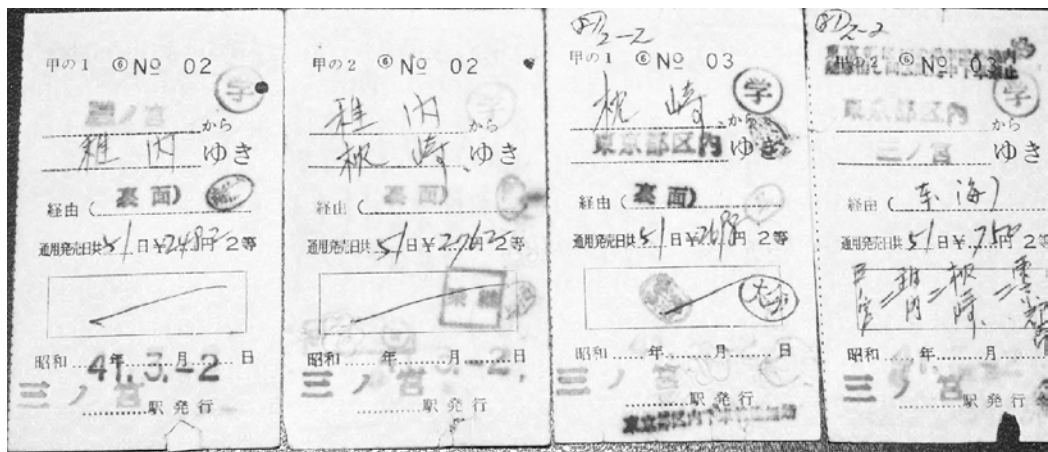 甲の1 ⑥ № 02
学
三ノ宮
から
稚内 ゆき
経由 (裏面)
通用発売日共 51 日 ¥ 2482 円 2等
昭和 41 年 3 月 -2 日
三ノ宮
駅発行
甲の2 ⑥ № 02
学
稚内 から
枕崎 ゆき
経由 (裏面)
通用発売日共 51 日 ¥ 2762 円 2等
昭和 年 月 日
三ノ宮
駅発行
学1 2-2
甲の1 ⑥ № 03
学
枕崎 から
東京都区内 ゆき
経由 (裏面)
通用発売日共 51 日 ¥ 2698 円 2等
昭和 年 月 日
三ノ宮
駅発行
2-2
甲の2 ⑥ № 03
学
東京都区内
から
三ノ宮 ゆき
経由 (東海)
通用発売日共 51 日 ¥ 750 円 2等
三宮=稚内=枕崎=
昭和 年 月 日
三ノ宮
駅発行